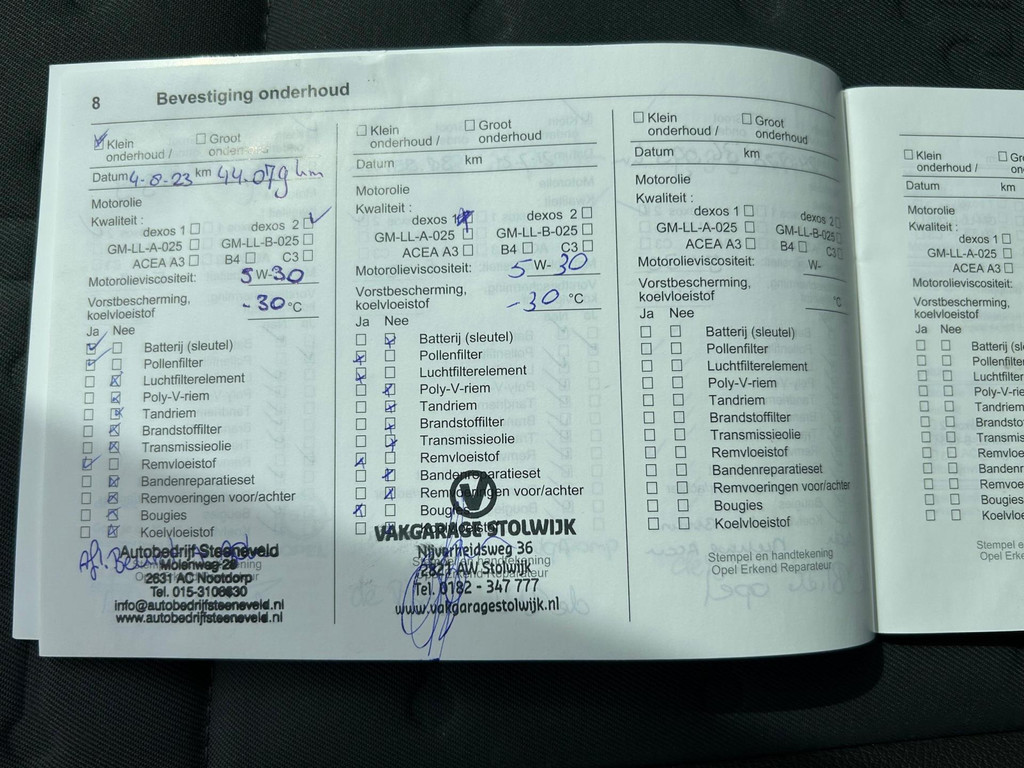 8 Bevestiging onderhoud
Klein onderhoud / Groot onderhoud
Datum 4-8-23 km 44.079 km
Motorolie
Kwaliteit :
dexos 1 dexos 2
GM-LL-A-025 GM-LL-B-025
ACEA A3 B4 C3
Motorolieviscositeit: 5 W-30
Vorstbescherming,
koelvloeistof -30 °C
Ja Nee
Batterij (sleutel)
Pollenfilter
Luchtfilterelement
Poly-V-riem
Tandriem
Brandstoffilter
Transmissieolie
Remvloeistof
Bandenreparatieset
Remvoeringen voor/achter
Bougies
Koelvloeistof
Autobedrijf Steeneveld
Molenweg
2631 AC Nootdorp
Tel. 015-3106430
info@autobedrijfsteeneveld.nl
www.autobedrijfsteeneveld.nl
Klein onderhoud / Groot onderhoud
Datum km
Motorolie
Kwaliteit :
dexos 1 dexos 2
GM-LL-A-025 GM-LL-B-025
ACEA A3 B4 C3
Motorolieviscositeit: 5 W- 30
Vorstbescherming,
koelvloeistof -30 °C
Ja Nee
Batterij (sleutel)
Pollenfilter
Luchtfilterelement
Poly-V-riem
Tandriem
Brandstoffilter
Transmissieolie
Remvloeistof
Bandenreparatieset
Remvoeringen voor/achter
Bougies
VAKGARAGE STOLWIJK
Nijverheidsweg 36
2821 AW Stolwijk
Tel. 0182 - 347 777
www.vakgaragestolwijk.nl
Klein onderhoud / Groot onderhoud
Datum km
Motorolie
Kwaliteit :
dexos 1 dexos 2
GM-LL-A-025 GM-LL-B-025
ACEA A3 B4 C3
Motorolieviscositeit: W-
Vorstbescherming,
koelvloeistof °C
Ja Nee
Batterij (sleutel)
Pollenfilter
Luchtfilterelement
Poly-V-riem
Tandriem
Brandstoffilter
Transmissieolie
Remvloeistof
Bandenreparatieset
Remvoeringen voor/achter
Bougies
Koelvloeistof
Stempel en handtekening
Opel Erkend Reparateur
Klein
onderhoud /
Datum km
Motorolie
Kwaliteit :
dexos 1
GM-LL-A-025
ACEA A3
Motorolieviscositeit:
Vorstbescherming,
koelvloeistof
Ja Nee